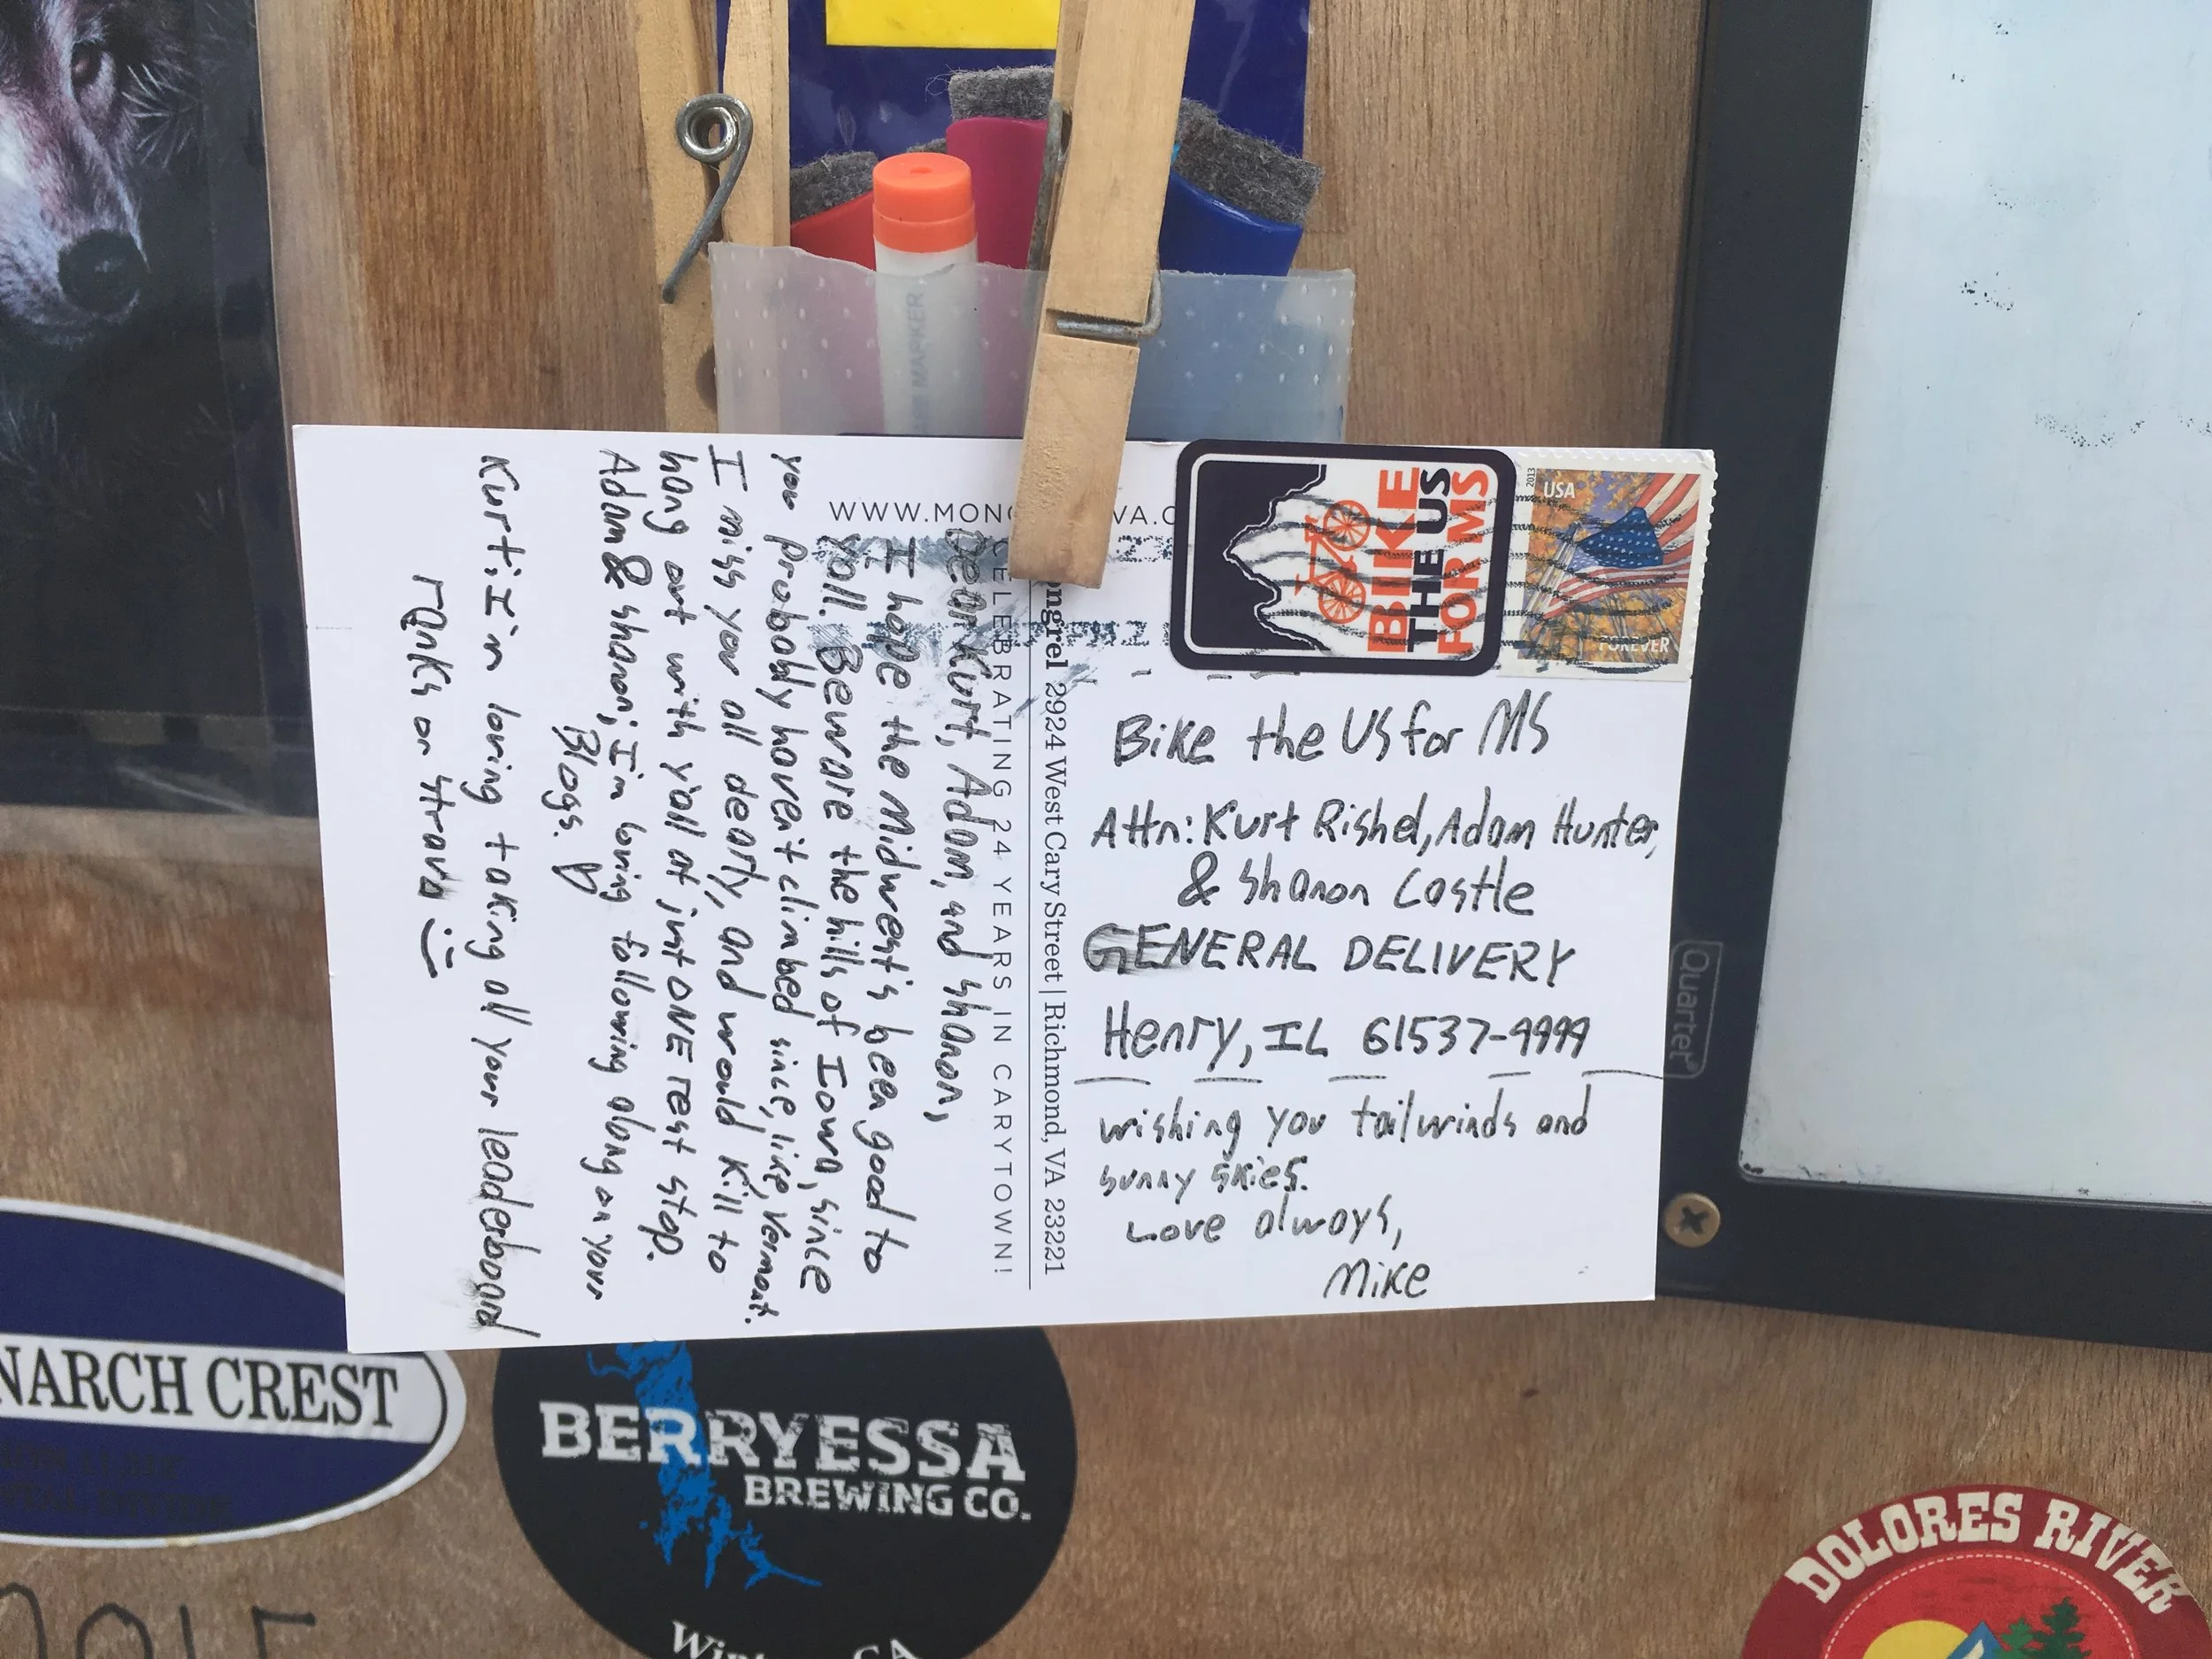 MARKER
WWW.MON
VA.C
BIKE
THE US
FOR MS
2013
USA
FOREVER
ongrel 2924 West Cary Street | Richmond, VA 23221
CELEBRATING 24 YEARS IN CARYTOWN!
Dear Kurt, Adam, and Shanon,
I hope the Midwest's been good to
y'all. Beware the hills of Iowa, since
you probably haven't climbed since, like, Vermont.
I miss you all dearly, and would kill to
hang out with y'all at just ONE rest stop.
Adam & Shanon; I'm loving following along on your
Blogs.
Kurt: I'm loving taking all your leaderboard
ranks on Strava :)
Bike the US for MS
Attn: Kurt Rishel, Adam Hunter,
& Shanon Castle
GENERAL DELIVERY
Henry, IL 61537-9999
wishing you tailwinds and
sunny skies.
Love always,
Mike
Quartet
NARCH CREST
BERRYESSA
BREWING CO.
CA
DOLORES RIVER